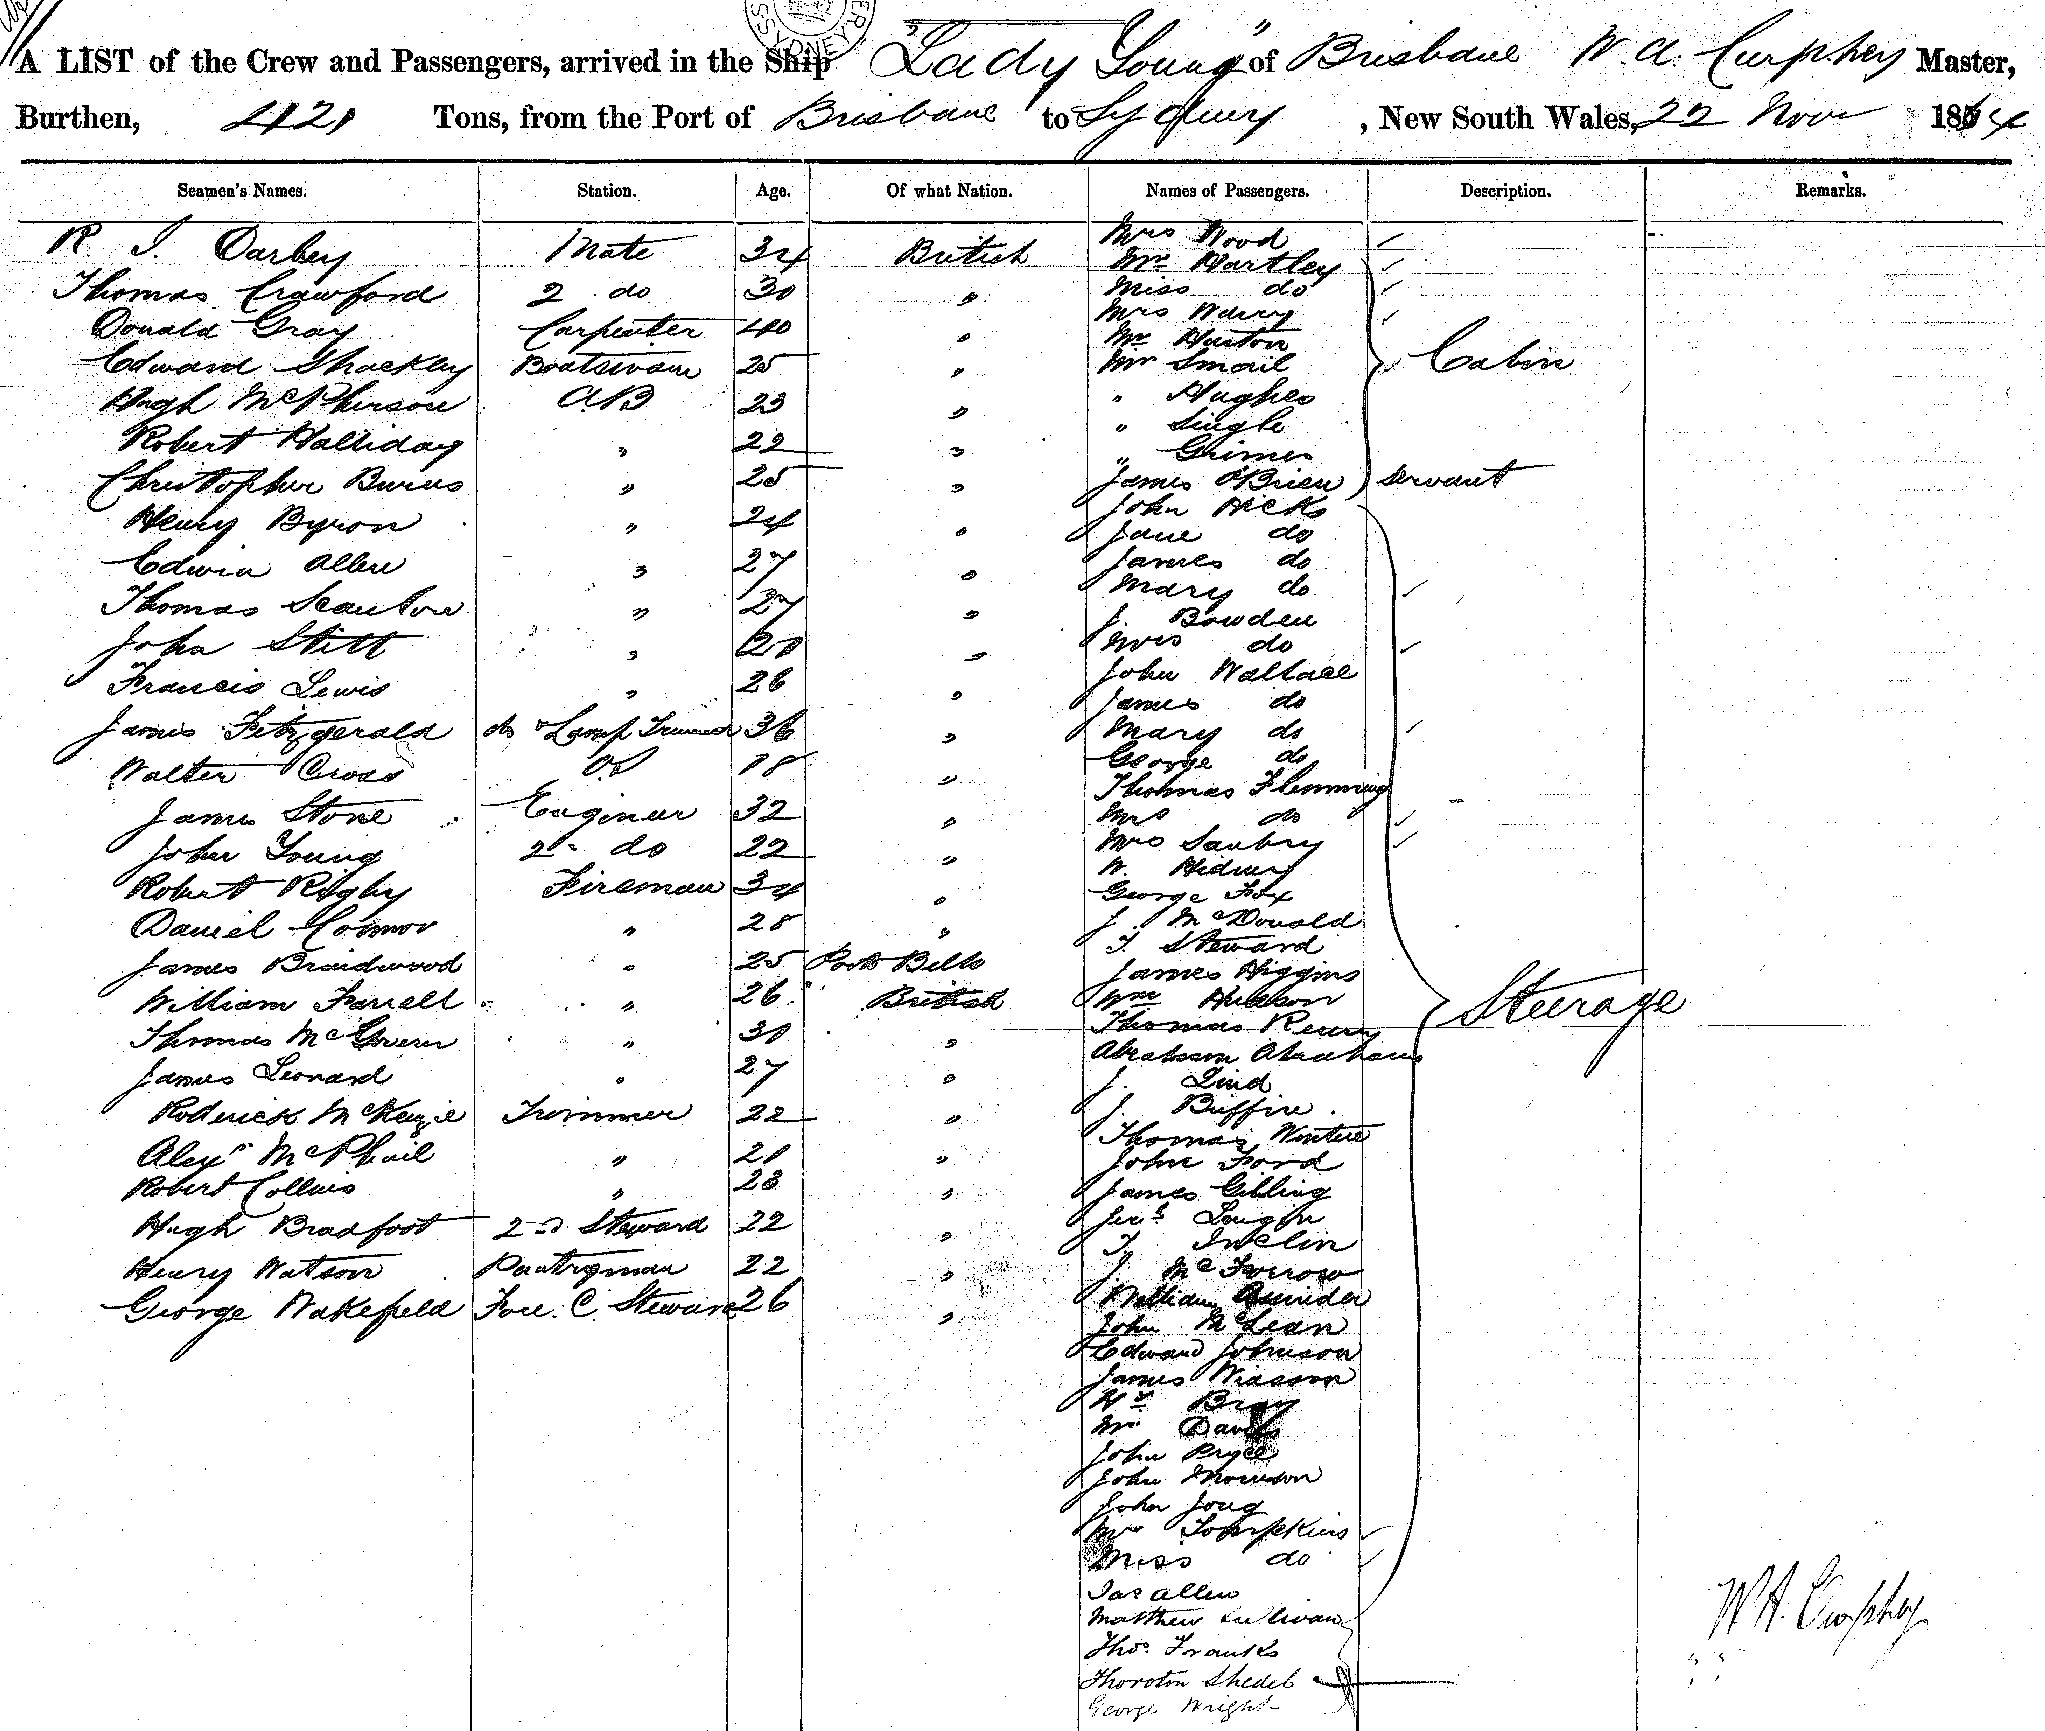 A LIST of the Crew and Passengers, arrived in the Ship "Lady Young" of Brisbane W. A. Curphey Master,
Burthen, 421 Tons, from the Port of Brisbane to Sydney, New South Wales, 22 Nov 1864
Seamen's Names. Station. Age. Of what Nation. Names of Passengers. Description. Remarks.
R J. Darbey Mate 34 British
Thomas Crawford 2 do 30 "
Donald Gray Carpenter 40 "
Edward Shackley Boatswain 25 "
Hugh McPherson AB 23 "
Robert Halliday " 22 "
Christopher Burns " 25 "
Henry Byron " 24 "
Edwin Allen " 27 "
Thomas Scanlon " 27 "
John Stitt " 20 "
Francis Lewis " 26 "
James Fitzgerald do & Lamp Trimmer 36 "
Walter Cross OS 18 "
James Stone Engineer 32 "
John Young 2 do 22 "
Robert Rigby Fireman 34 "
Daniel Connor " 28 "
James Braidwood " 25
William Farrell " 26 British
Thomas McGovern " 30 "
James Leonard " 27 "
Roderick McKenzie Trimmer 22 "
Alexr McPhail " 21 "
Robert Collins " 23 "
Hugh Bradfoot 2nd Steward 22 "
Henry Watson Pantryman 22 "
George Wakefield Fore C. Steward 26 "
Mrs Wood
Mr Hartley
Miss do
Mrs
Mr Huston
Mr Smail
" Hughes
" Single
" Grimes
Cabin
James O'Brien servant
John Hicks
Jane do
James do
Mary do
J. Bowden
Mrs do
John Wallace
James do
Mary do
George do
Thomas Flemming
Mrs do
Mrs Sanbry
W.
George Fox
J. McDonald
T. Steward
James Higgins
Wm Hudson
Thomas
Abraham Abrahams
J. Lind
J. Buffire
Thomas Winter
John Ford
James Gibling
T. Inclin
J. McForrow
William
John McLean
Edward Johnson
James Wasson
Wm Bray
Mr Davis
John Pryce
John Morrison
John Joug
Mrs Tompkins
Miss do
Jas Allen
Matthew Sullivan
Thos Franks
Thoroton Shedel
George Wright
Steerage
W H. Curphey